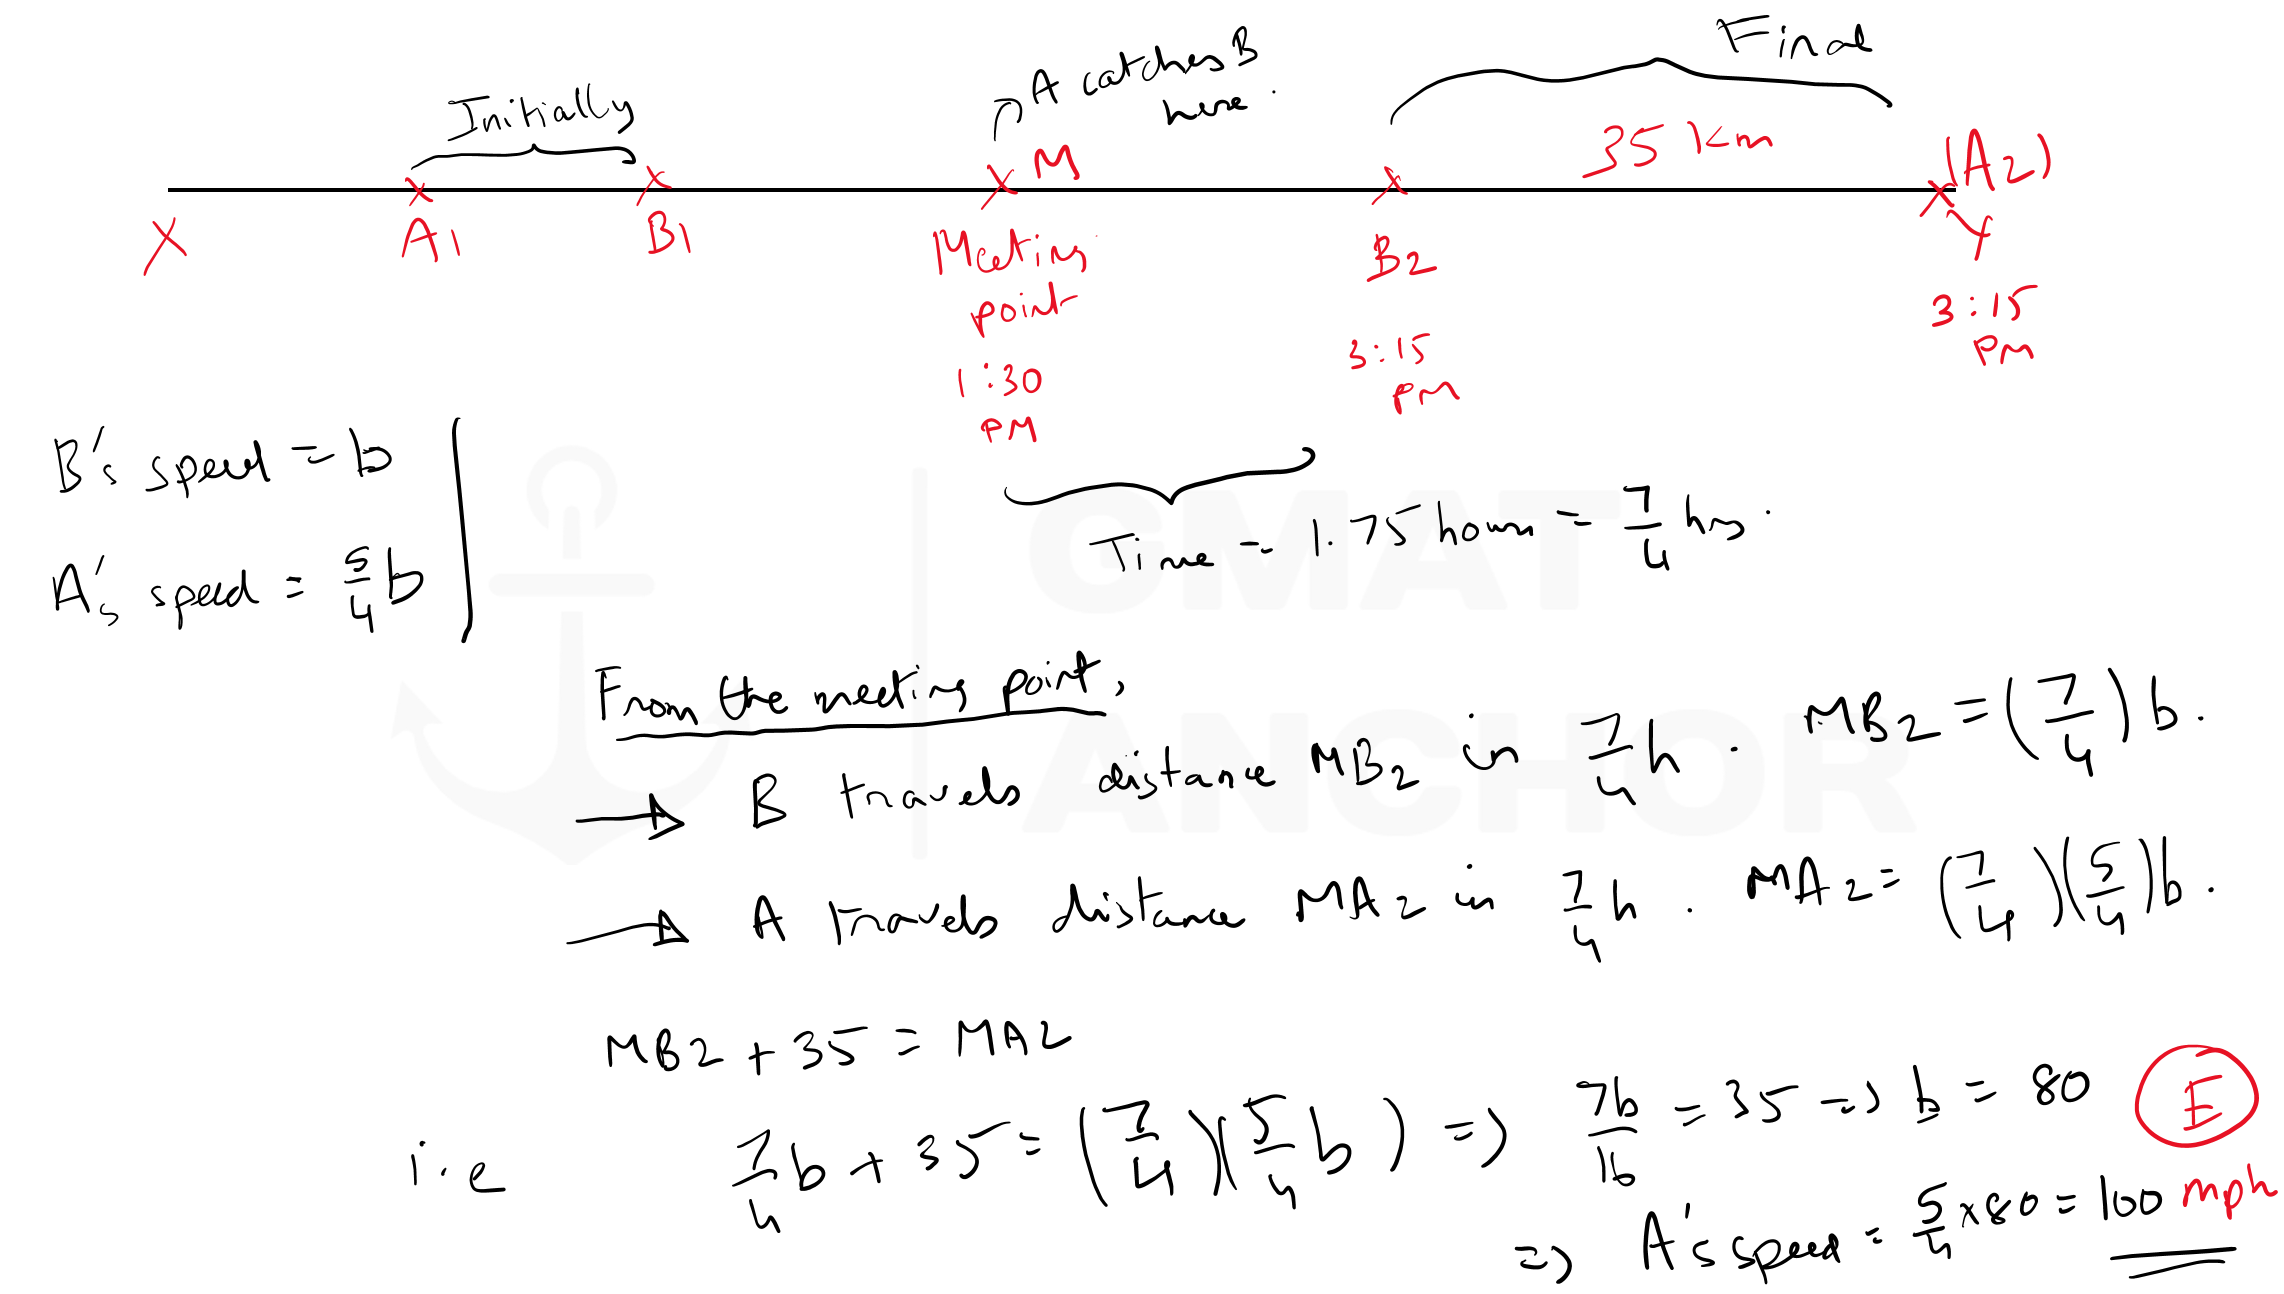 Final
A catches B
here.
Initially
35 Km
M
(A2)
X
A1
B1
Meeting
point
1:30
PM
B2
3:15
PM
Y
3:15
PM
B's speed = b
A's speed = 5/4 b
Time = 1.75 hours = 7/4 hrs.
GMAT
ANCHOR
From the meeting point,
→ B travels distance MB2 in 7/4 h. MB2 = (7/4) b.
→ A travels distance MA2 in 7/4 h. MA2 = (7/4)(5/4) b.
MB2 + 35 = MA2
i.e 7/4 b + 35 = (7/4)(5/4 b) => 7b/16 = 35 => b = 80
E
=> A's speed = 5/4 x 80 = 100 mph